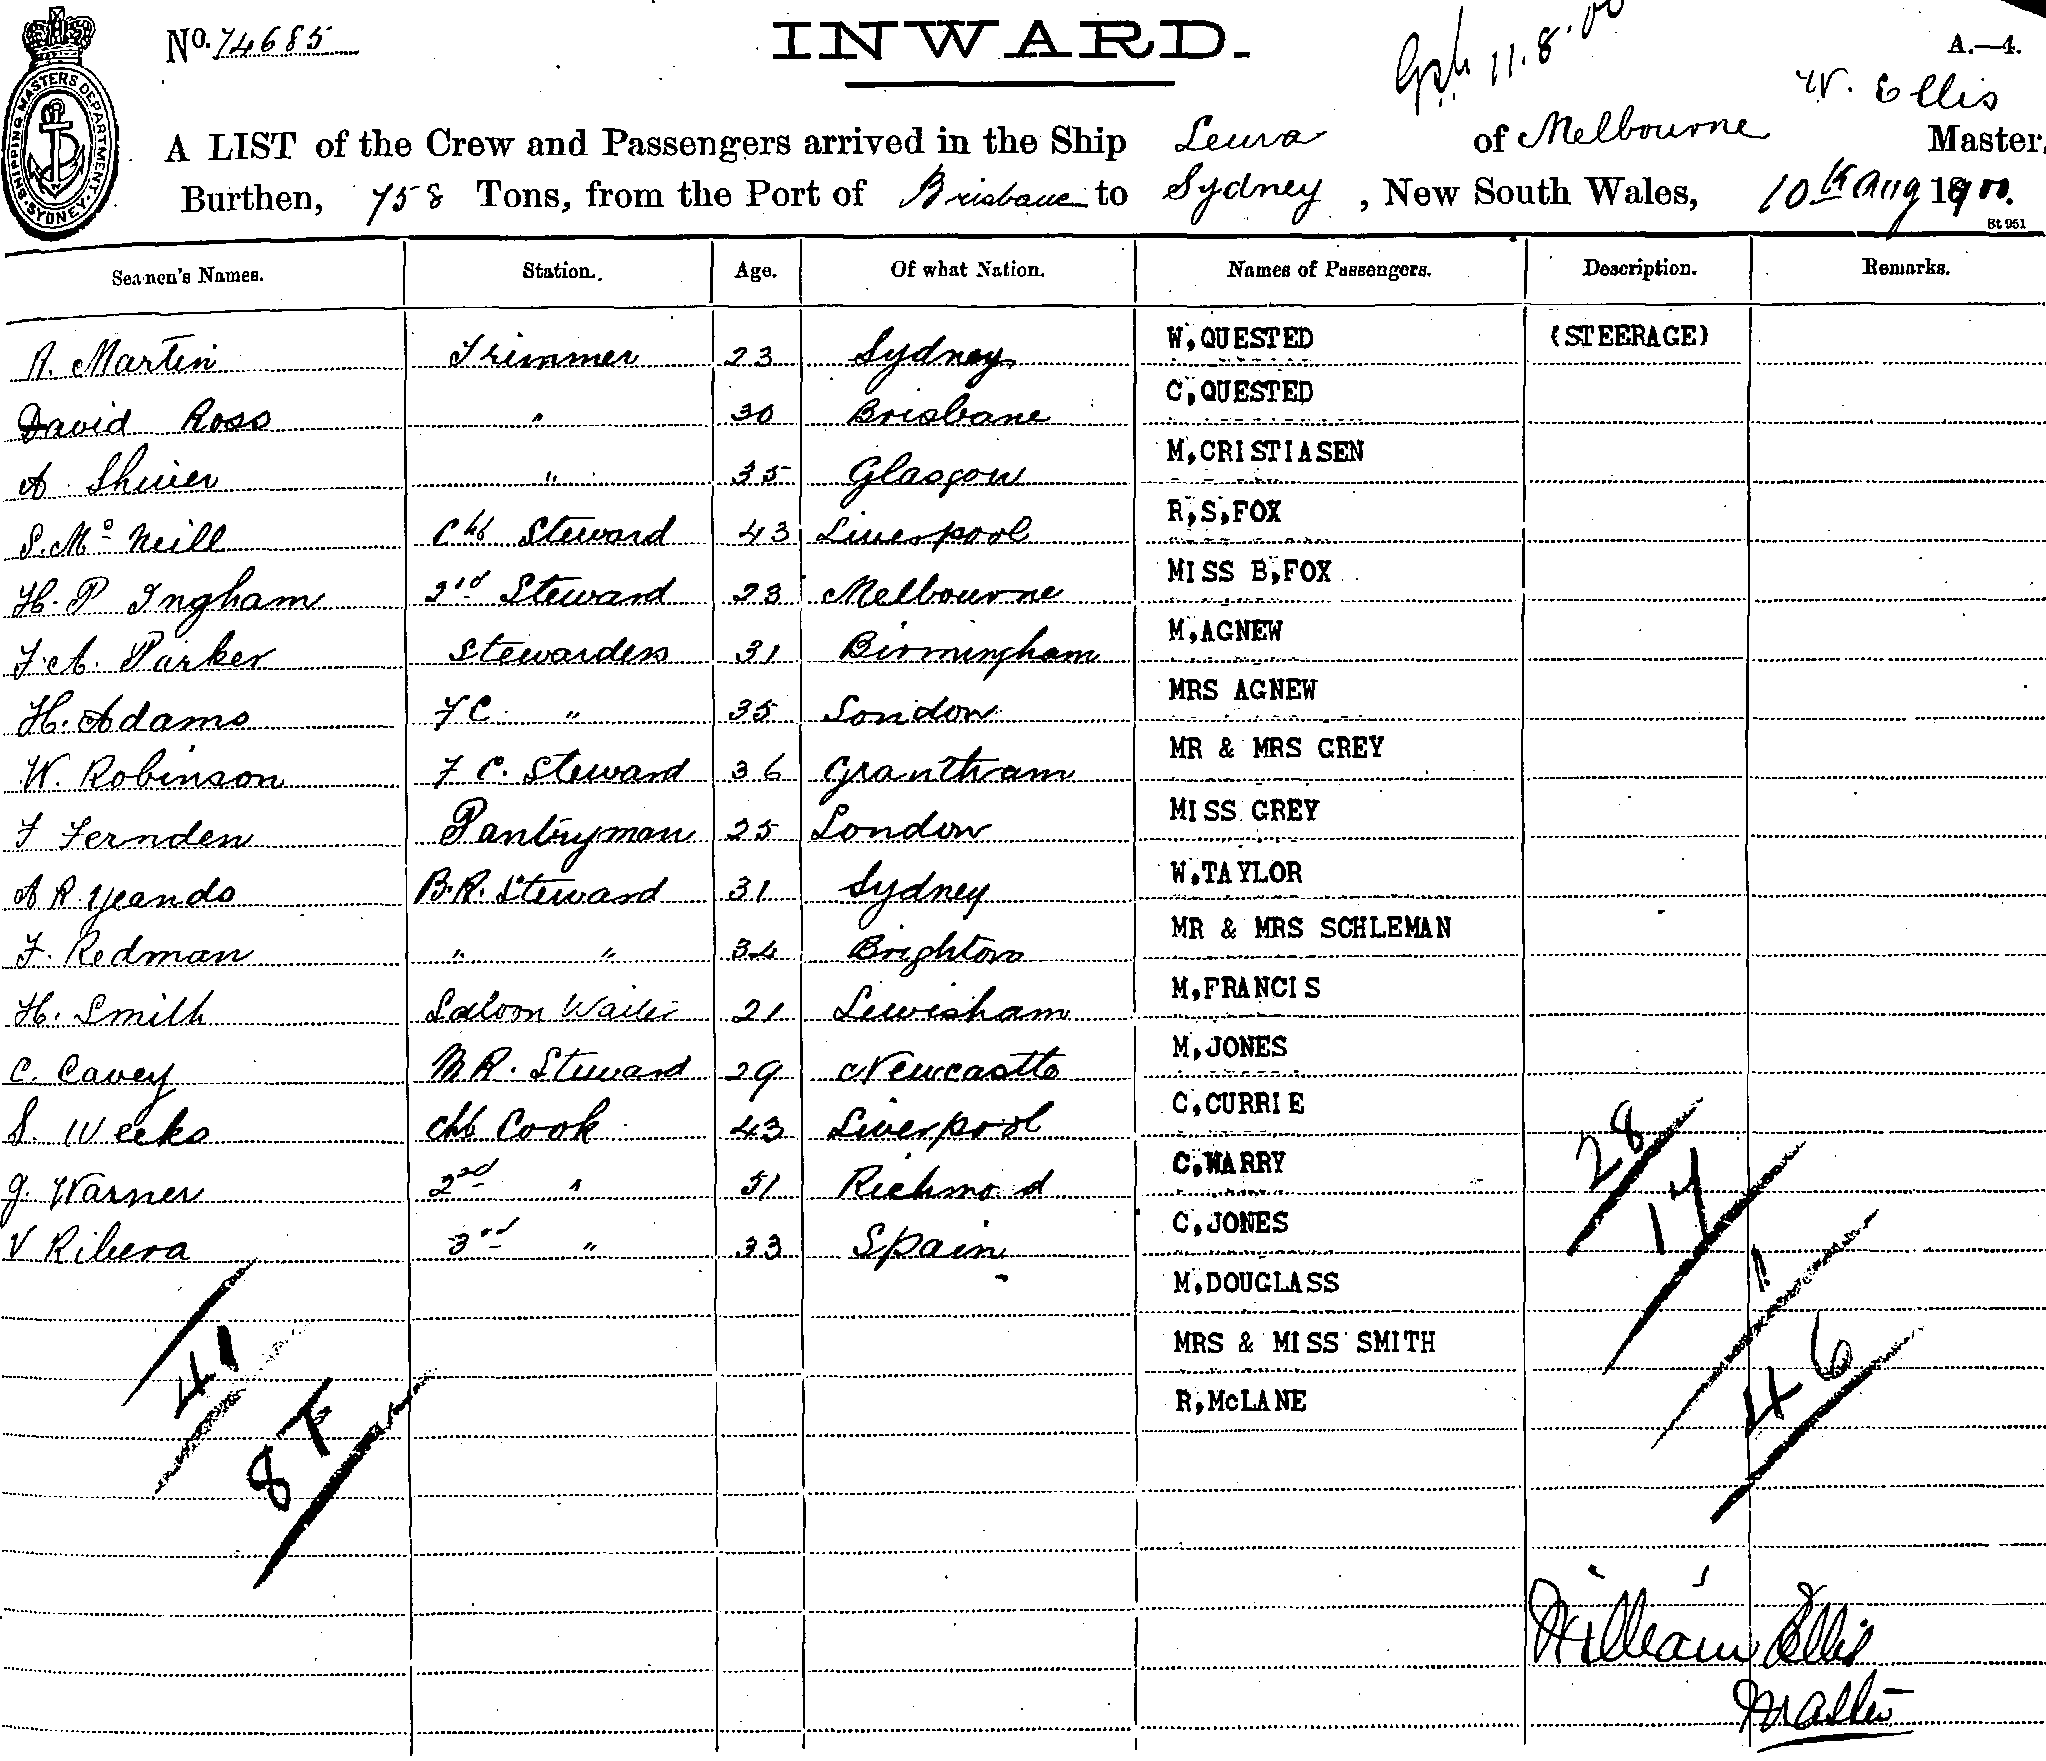 SHIPPING MASTERS DEPARTMENT. SYDNEY.
No. 74685
INWARD.
11.8.00
A.—4.
W. Ellis
A LIST of the Crew and Passengers arrived in the Ship Leura of Melbourne Master,
Burthen, 758 Tons, from the Port of Brisbane to Sydney, New South Wales, 10th Aug 1900.
St 951
Seamen's Names. Station. Age. Of what Nation. Names of Passengers. Description. Remarks.
A. Martin Trimmer 23 Sydney W,QUESTED (STEERAGE)
David Ross " 30 Brisbane C,QUESTED
A Shiver " 35 Glasgow M,CRISTIASEN
S. Mc Neill Chf Steward 43 Liverpool R,S,FOX
H. P Ingham 2nd Steward 23 Melbourne MISS B,FOX
F. A. Parker Stewardess 31 Birmingham M,AGNEW
H. Adams F C " 35 London MRS AGNEW
W. Robinson F C. Steward 36 Grantham MR & MRS GREY
F Fernden Pantryman 25 London MISS GREY
A R Yeando B.R. Steward 31 Sydney W.TAYLOR
F. Redman " " 34 Brighton MR & MRS SCHLEMAN
H. Smith Saloon Waiter 21 Lewisham M,FRANCIS
C. Cavey M R. Steward 29 Newcastle M,JONES
S. Weeks Chf Cook 43 Liverpool C,CURRIE
J. Warner 2nd " 51 Richmo d C,WARRY
V Ribera 3rd " 33 Spain C,JONES
M,DOUGLASS
MRS & MISS SMITH
R,McLANE
28
17
1
46
41
87
William Ellis
Master